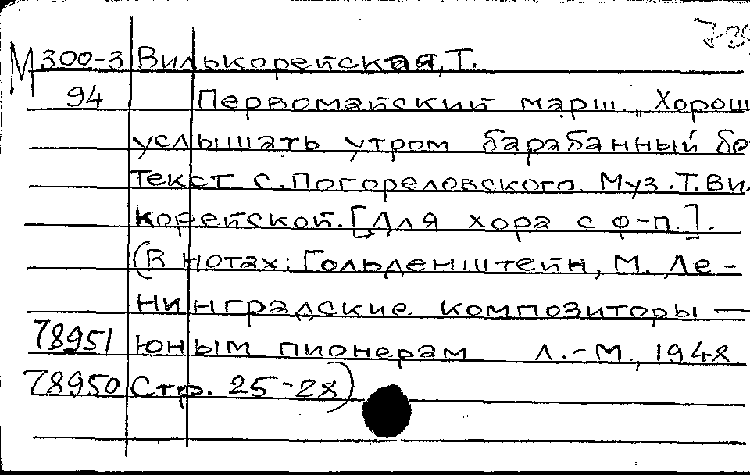 М 300-3 Вилькорейская, Т.
94 Первомайский марш. Хорош
услышать утром барабанный бо
Текст С. Погореловского. Муз. Т. Ви
корейской. [Для хора с ф-п.].
(В нотах: Гольденштейн, М. Ле-
нинградские композиторы —
78951 юным пионерам Л.-М., 1948
78950 Стр. 25-28)